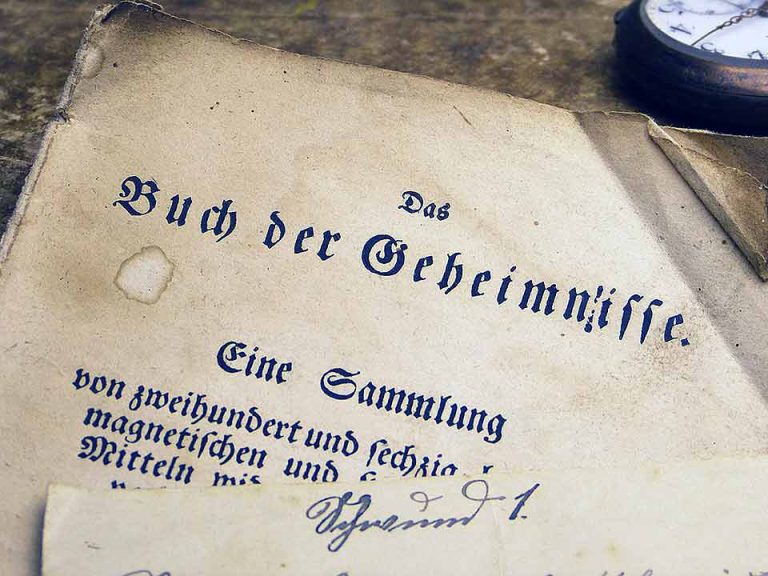 Das
Buch der Geheimnisse.
Eine Sammlung
von zweihundert und sechzig
magnetischen und
Mitteln
Schwund 1.